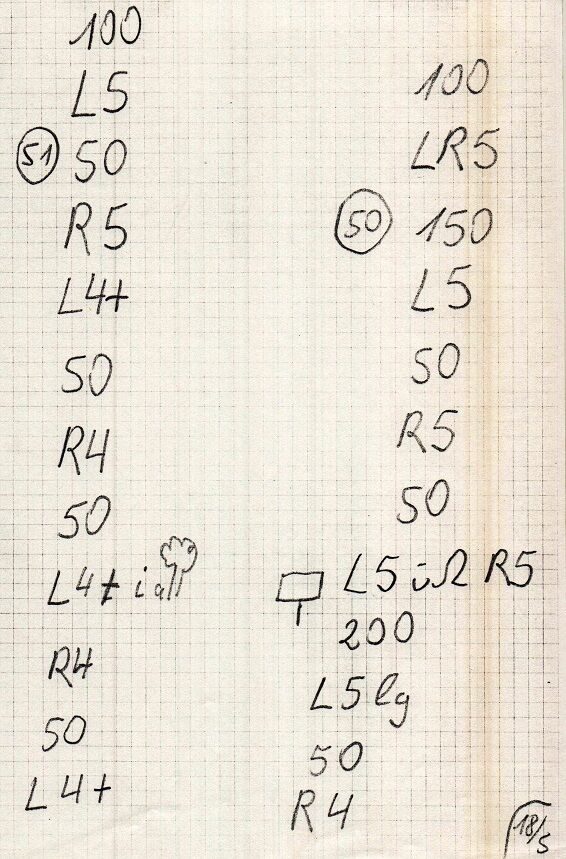 100
L5
51 50
R5
L4+
50
R4
50
L4+ i all
R4
50
L4+
100
LR5
50 150
L5
50
R5
50
L5 ü R5
200
L5 lg
50
R4
18/5